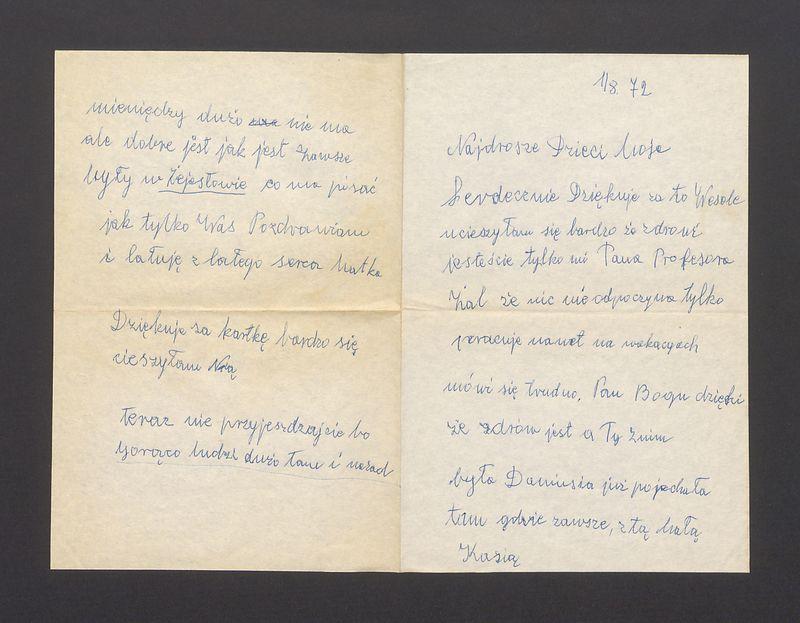 1/8. 72
Najdrosze Dzieci Moje
Serdecznie Dziękuje za to Wesole
ucieszyłam się bardzo że zdrowi
jesteście tylko mi Pana Profesora
Żal że nic nie odpoczywa tylko
pracuje nawet na wakacyach
mówi się trudno. Pan Bogu dzięki
że zdrów jest a Ty Znim
była Danusia już pojechała
tam gdzie zawsze, z tą małą
Kasią
mieniędzy dużo nie ma
ale dobre jest jak jest zawsze
były w Żejesłowie co ma pisać
jak tylko Was Pozdrawiam
i całuję z całego serca Matka
Dziękuje za kartkę bardzo się
cieszyłam Nią
teraz nie przyjeszdzajcie bo
gorąco ludzi dużo tam i nazad